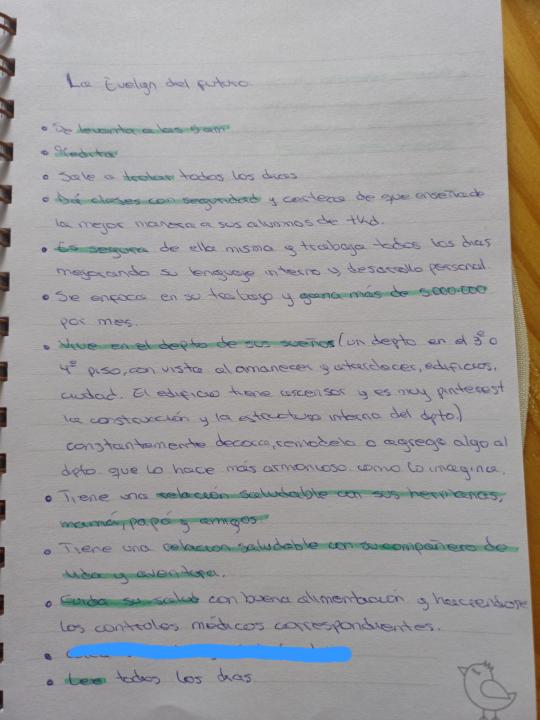 La Evelyn del futuro.
• Se levanta a las 5am
• Medita
• Sale a trotar todos los dias
• Dá clases con seguridad y certeza de que enseña de
la mejor manera a sus alumnos de tkd.
• Es segura de ella misma y trabaja todos los dias
mejorando su lenguaje interno y desarrollo personal
• Se enfoca en su trabajo y gana más de 5.000.000
por mes.
• Vive en el depto de sus sueños (un depto en el 3º o
4º piso, con vista al amanecer y atardecer, edificios,
ciudad. El edificio tiene ascensor y es muy pinterest
la construcción y la estructura interna del dpto.)
constantemente decora, remodela o agrega algo al
dpto. que lo hace más armonioso como lo imagina.
• Tiene una relación saludable con sus hermanas,
mamá, papá y amigos.
• Tiene una relacion saludable con su compañero de
vida y aventura.
• Cuida su salud con buena alimentación y haciendose
los controles médicos correspondientes.
• Lee todos los dias.